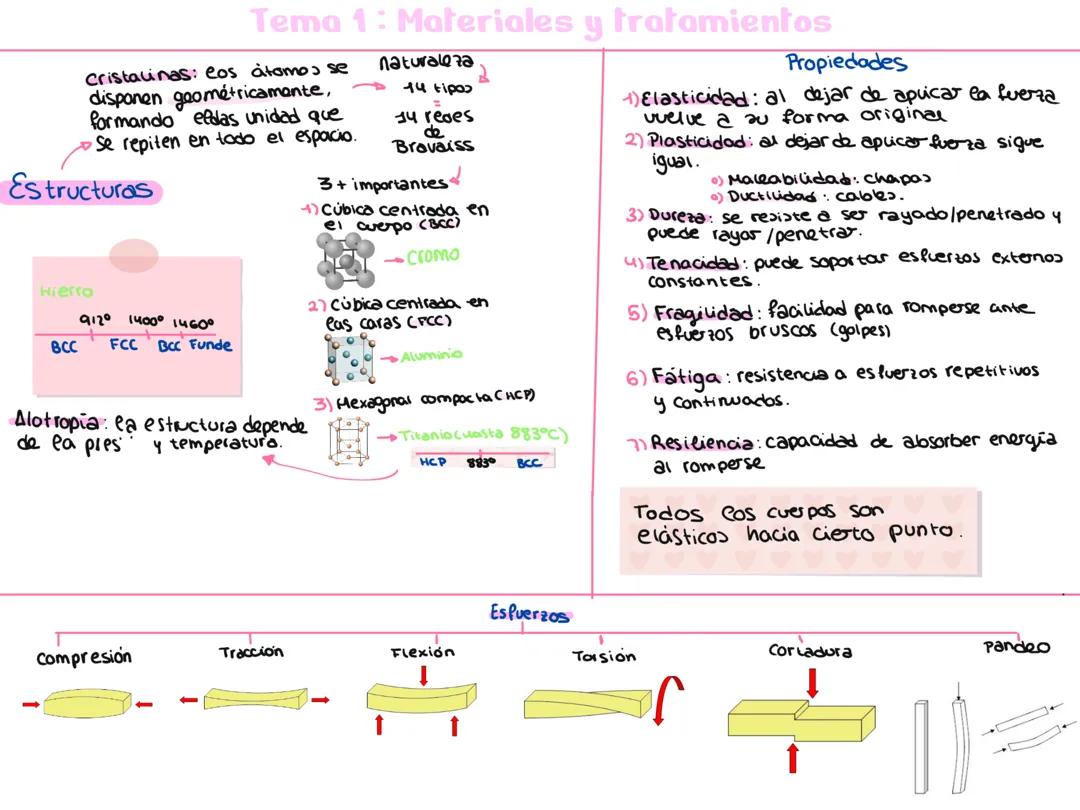 Tema 1: Materiales y tratamientos
Estructuras
Cristalinas: los átomos se
disponen geométricamente,
formando celdas unidad que
se repiten en todo el espacio.
naturaleza
14 tipos
=
14 redes
de
Bravaiss
3 + importantes
1) Cúbica centrada en
el cuerpo (BCC)
Cromo
2) Cúbica centrada en
las caras (FCC)
Aluminio
3) Hexagonal compacta (HCP)
Titanio (hasta 883°C)
HCP 883° BCC
Hierro
912° 1400° 1460°
BCC FCC BCC Funde
Alotropía: la estructura depende
de la pres y temperatura.
Propiedades
1) Elasticidad: al dejar de aplicar la fuerza
vuelve a su forma original
2) Plasticidad: al dejar de aplicar fuerza sigue
igual.
o) Maleabilidad: chapas
o) Ductilidad: cables.
3) Dureza: se resiste a ser rayado/penetrado y
puede rayar/penetrar.
4) Tenacidad: puede soportar esfuerzos externos
constantes.
5) Fragilidad: facilidad para romperse ante
esfuerzos bruscos (golpes)
6) Fátiga: resistencia a esfuerzos repetitivos
y continuados.
7) Resiliencia: capacidad de absorber energía
al romperse
Todos los cuerpos son
elásticos hacia cierto punto.
Esfuerzos
Compresión
Tracción
Flexión
Torsión
Cortadura
Pandeo